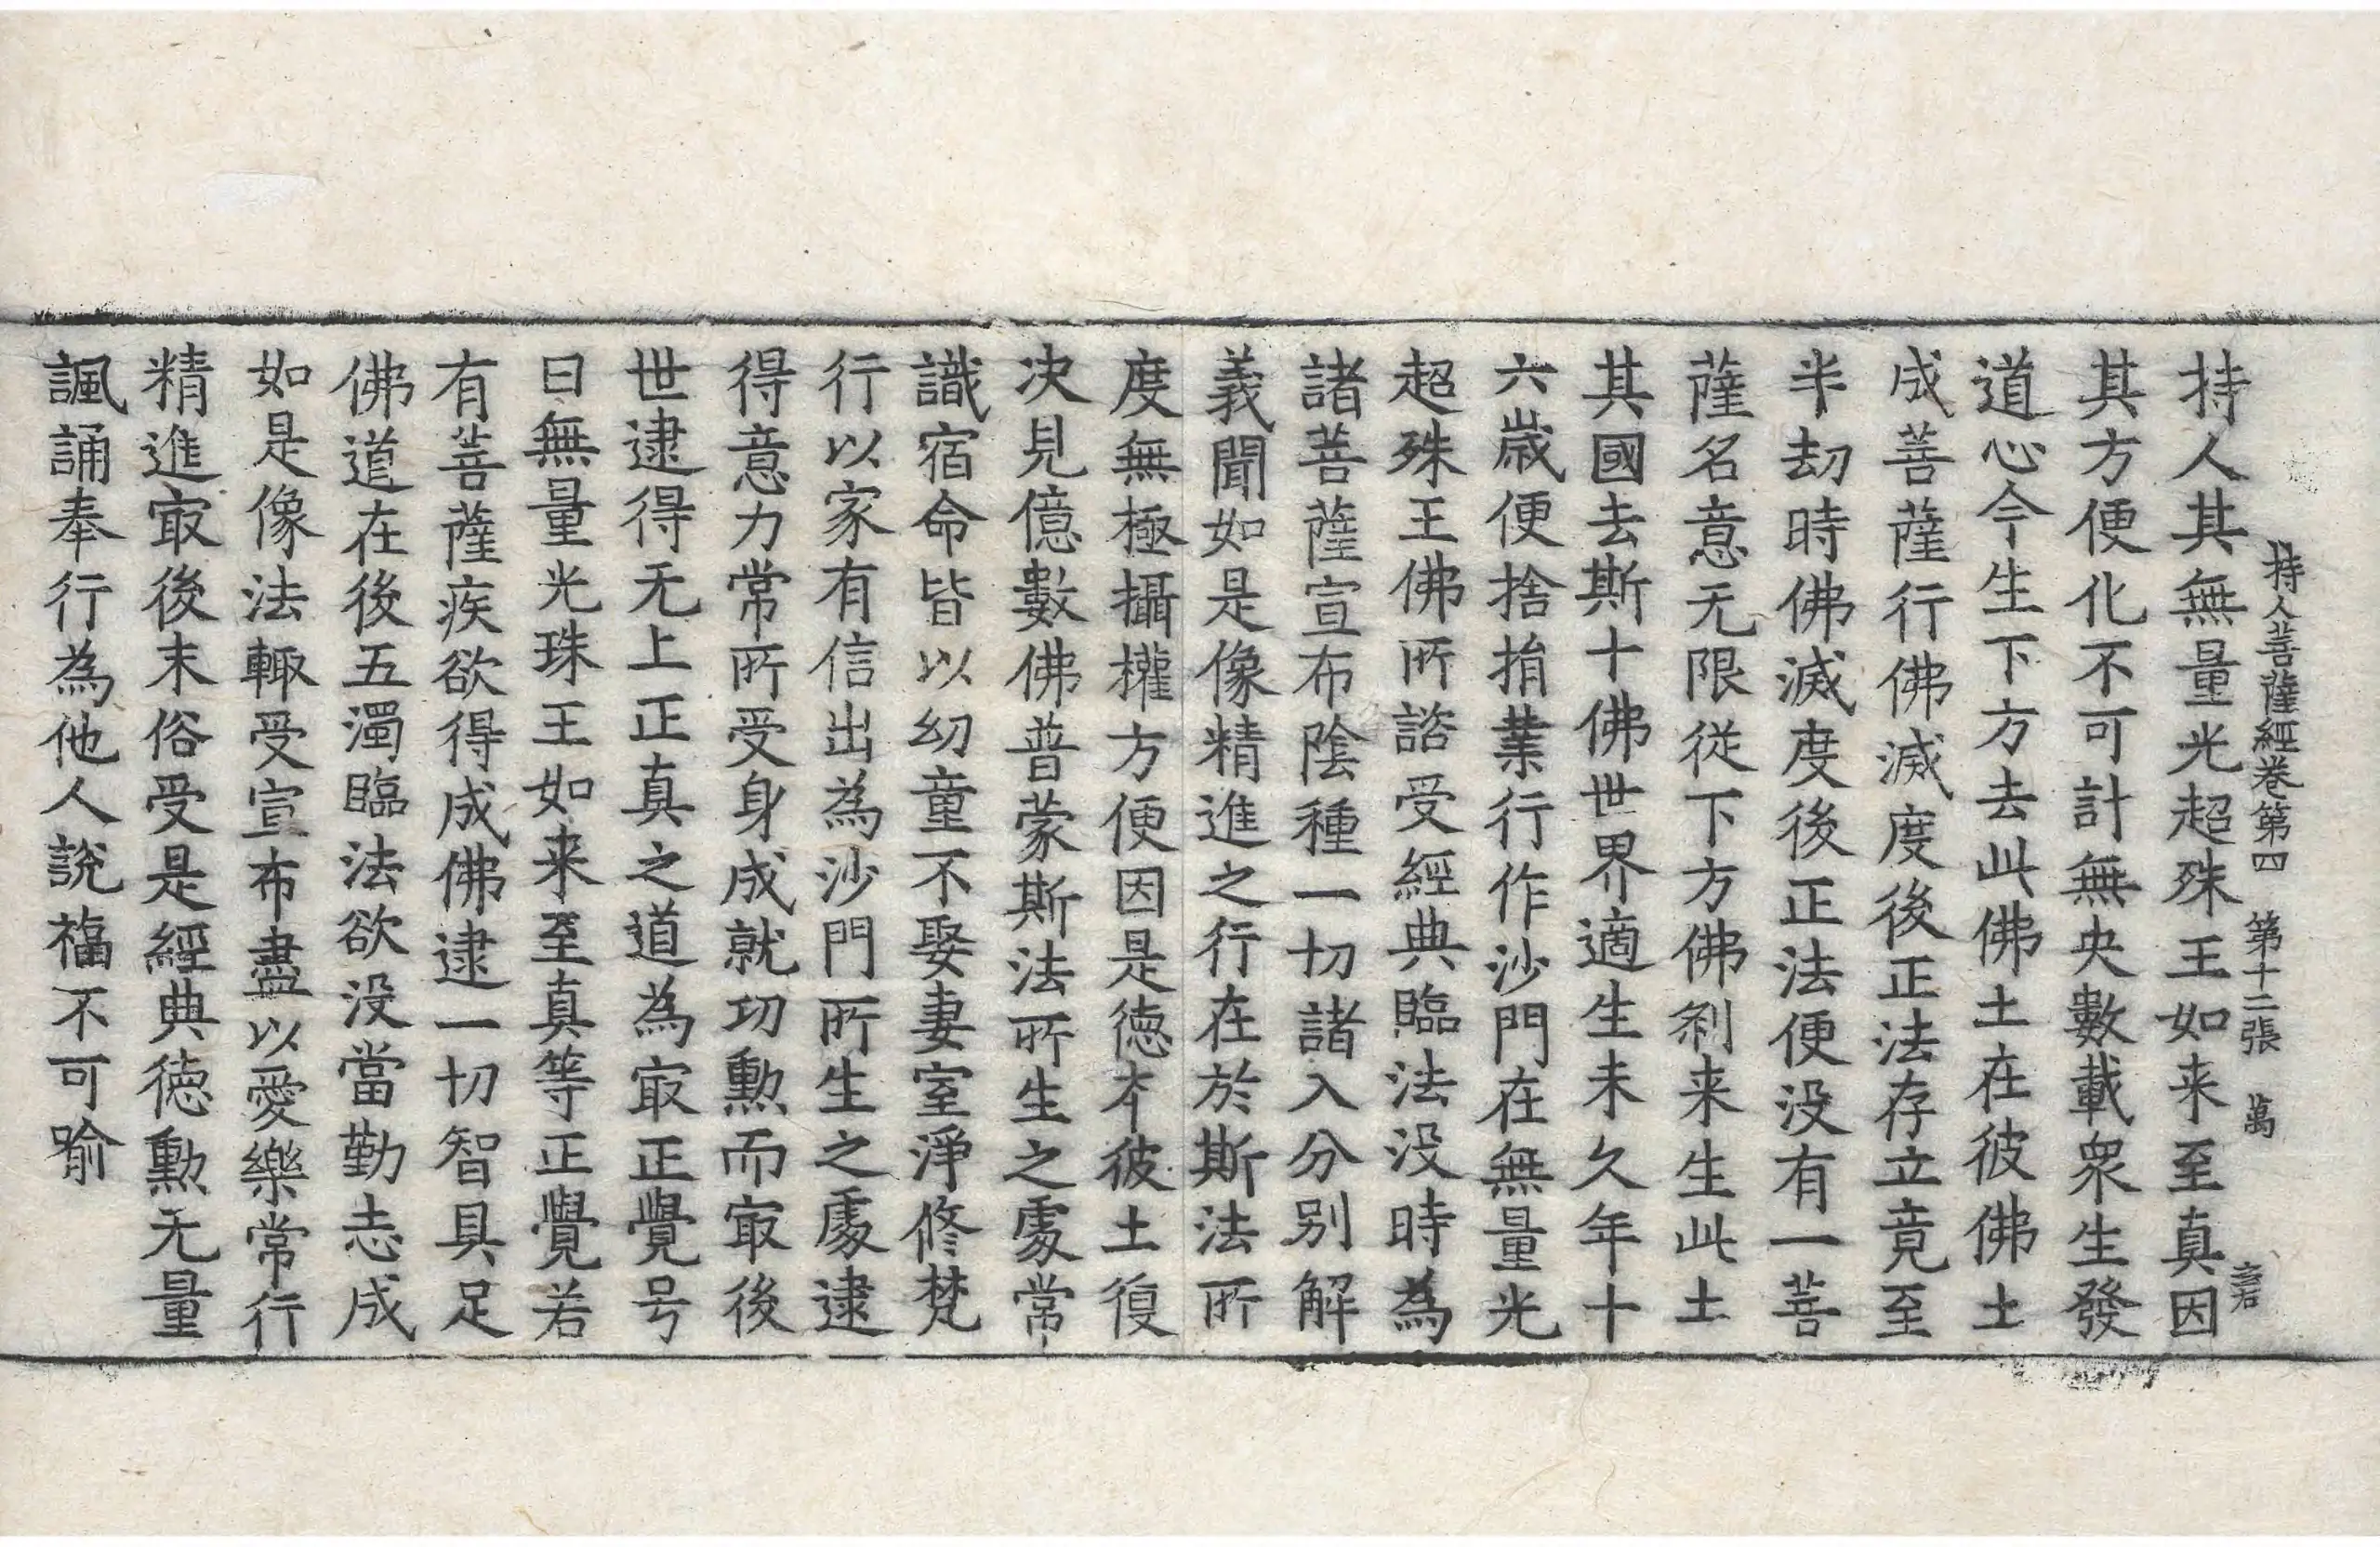 持人菩薩經卷第四　第十二張　萬
持人其無量光超殊王如来至真因
其方便化不可計無央數載衆生發
道心今生下方去此佛土在彼佛土
成菩薩行佛滅度後正法存立竟至
半劫時佛滅度後正法便没有一菩
薩名意无限從下方佛刹来生此土
其國去斯十佛世界適生未久年十
六歲便捨捐業行作沙門在無量光
超殊王佛所諮受經典臨法没時為
諸菩薩宣布陰種一切諸入分别解
義聞如是像精進之行在於斯法所
度無極攝權方便因是徳夲彼土復
决見億數佛普蒙斯法所生之處常
識宿命皆以幼童不娶妻室淨修梵
行以家有信出為沙門所生之處逮
得意力常所受身成就功勲而㝡後
世逮得无上正真之道為㝡正覺号
曰無量光珠王如来至真等正覺若
有菩薩疾欲得成佛逮一切智具足
佛道在後五濁臨法欲没當勤志成
如是像法輙受宣布盡以愛樂常行
精進㝡後末俗受是經典徳勲无量
諷誦奉行為他人說福不可喻